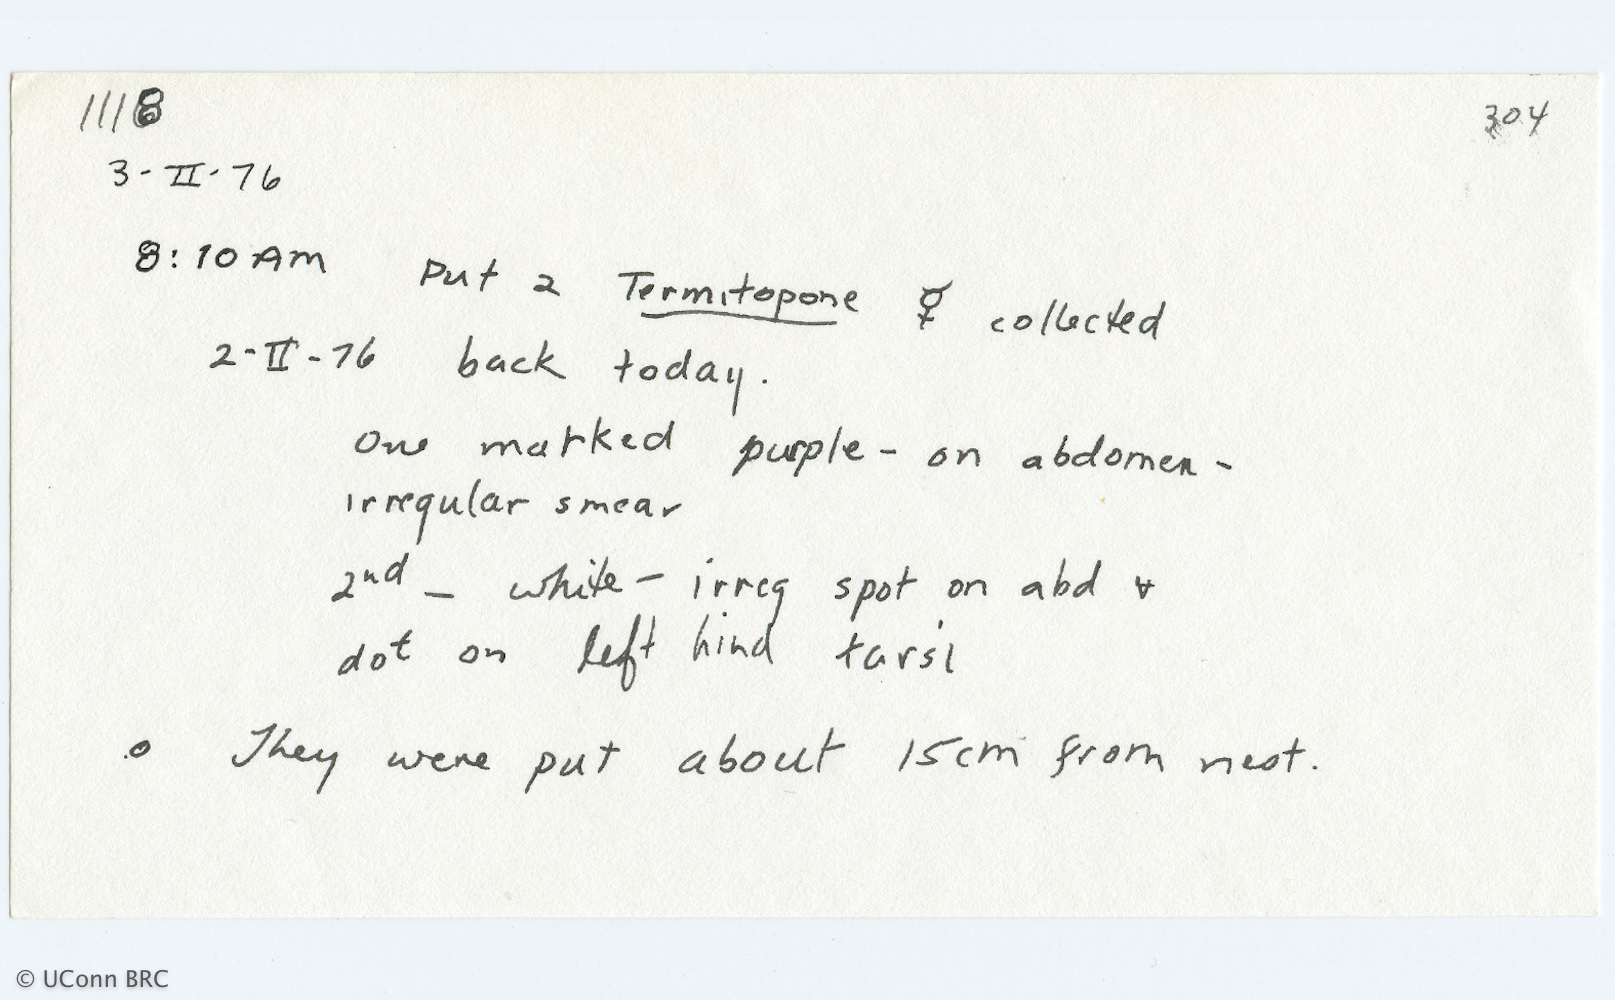 1118
304
3-II-76
8:10 AM Put 2 Termitopone ☿ collected
2-II-76 back today.
One marked purple - on abdomen -
irregular smear
2nd - white - irreg spot on abd &
dot on left hind tarsi
They were put about 15cm from nest.
© UConn BRC